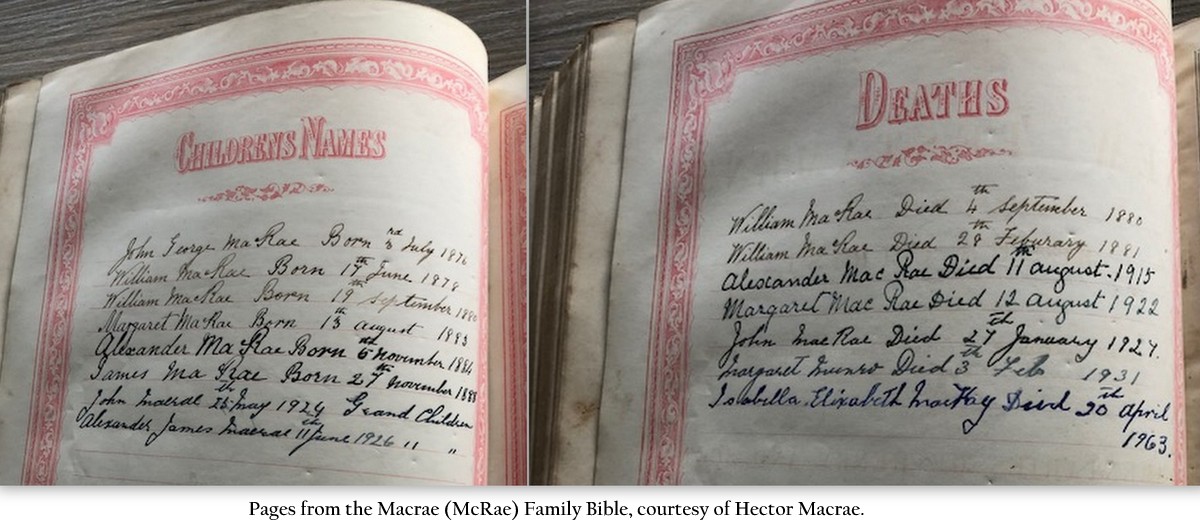 CHILDRENS NAMES
John George MacRae Born 3rd July 1876
William MacRae Born 17th June 1878
William MacRae Born 19th September 1880
Margaret MacRae Born 13th august 1883
Alexander MacRae Born 6th November 1884
James MacRae Born 27th November 1888
John Macrae 25th May 1924 Grand Children
Alexander James Macrae 11th June 1926 " "
DEATHS
William MacRae Died 4th September 1880
William MacRae Died 28th Feburary 1881
Alexander Mac Rae Died 11th august. 1915
Margaret Mac Rae Died 12 august 1922
John MacRae Died 27th January 1927.
Margaret Munro Died 3th Feb 1931
Isabella Elizabeth MacKay Died 20th April
1963.
Pages from the Macrae (McRae) Family Bible, courtesy of Hector Macrae.